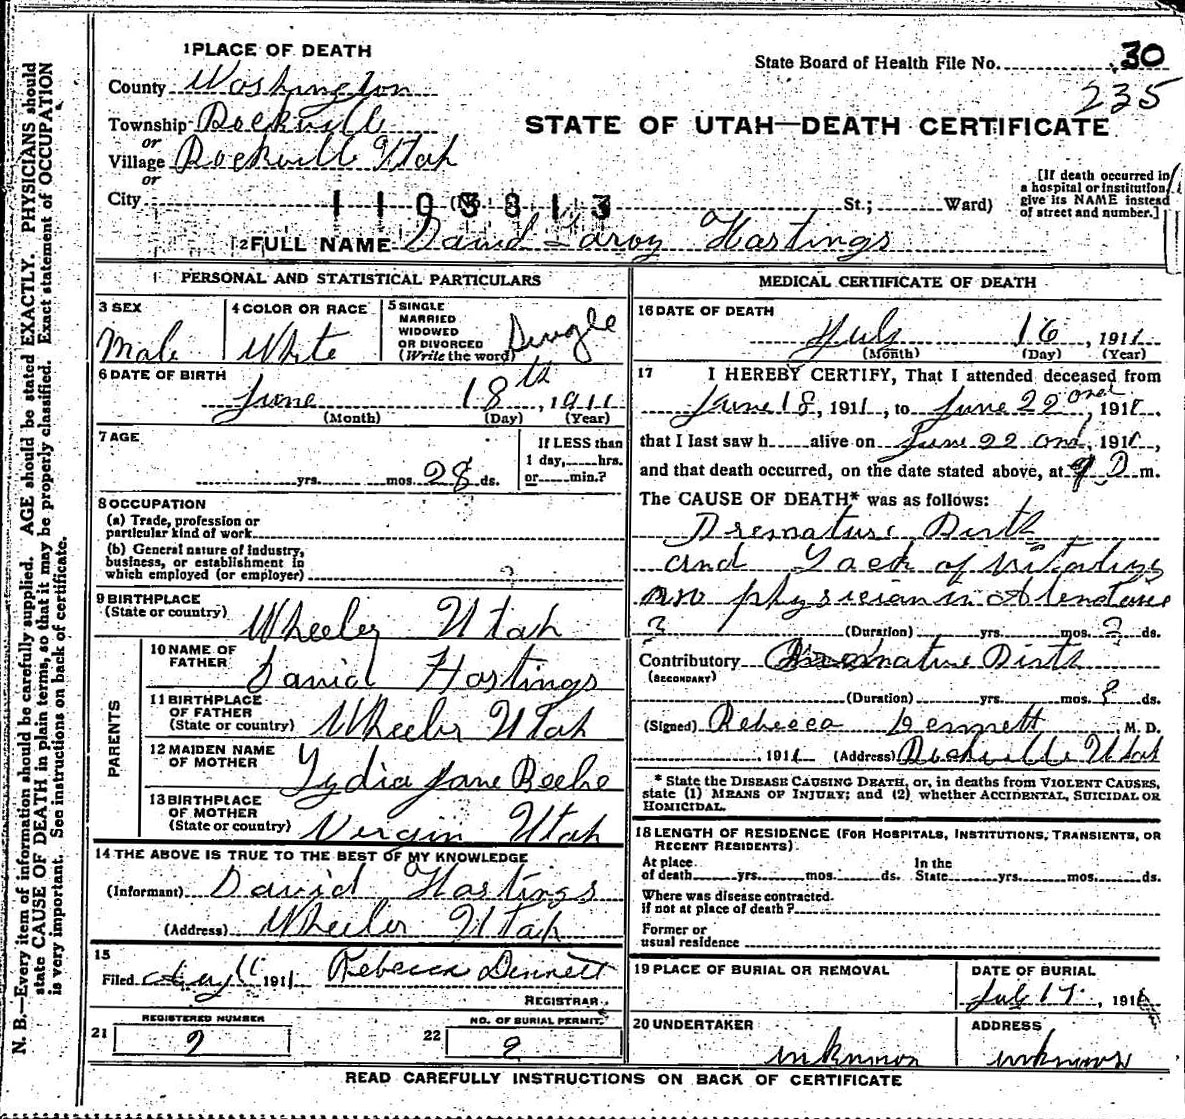 1 PLACE OF DEATH
County Washington
Township Rockville
or
Village Rockville Utah
or
City
(No.
St.; Ward)
State Board of Health File No. 30
235
STATE OF UTAH—DEATH CERTIFICATE
[If death occurred in
a hospital or institution,
give its NAME instead
of street and number.]
2 FULL NAME David Hastings
PERSONAL AND STATISTICAL PARTICULARS
3 SEX
Male
4 COLOR OR RACE
White
5 SINGLE
MARRIED
WIDOWED
OR DIVORCED
(Write the word)
Single
6 DATE OF BIRTH
June 18th, 1911
(Month) (Day) (Year)
7 AGE
yrs. mos. 28 ds.
If LESS than
1 day, hrs.
or min.?
8 OCCUPATION
(a) Trade, profession or
particular kind of work
(b) General nature of industry,
business, or establishment in
which employed (or employer)
9 BIRTHPLACE
(State or country) Wheeler Utah
PARENTS
10 NAME OF
FATHER David Hastings
11 BIRTHPLACE
OF FATHER
(State or country) Wheeler Utah
12 MAIDEN NAME
OF MOTHER Lydia Jane Beebe
13 BIRTHPLACE
OF MOTHER
(State or country) Virgin Utah
14 THE ABOVE IS TRUE TO THE BEST OF MY KNOWLEDGE
(Informant) David Hastings
(Address) Wheeler Utah
15
Filed 1911 Rebecca Dennett
REGISTRAR
REGISTERED NUMBER
21
NO. OF BURIAL PERMIT
22
MEDICAL CERTIFICATE OF DEATH
16 DATE OF DEATH
July 16, 1911
(Month) (Day) (Year)
17 I HEREBY CERTIFY, That I attended deceased from
June 18, 1911, to June 22 ond, 1911,
that I last saw h alive on June 22 ond, 1911,
and that death occurred, on the date stated above, at m.
The CAUSE OF DEATH* was as follows:
Premature Birth
and Lack of
no physician in Atendance
(Duration) yrs. mos. ds.
Contributory Premature Birth
(SECONDARY)
(Duration) yrs. mos. ds.
(Signed) Rebecca Dennett, M. D.
, 1911 (Address) Rockville Utah
* State the DISEASE CAUSING DEATH, or, in deaths from VIOLENT CAUSES,
state (1) MEANS OF INJURY; and (2) whether ACCIDENTAL, SUICIDAL OR
HOMICIDAL.
18 LENGTH OF RESIDENCE (FOR HOSPITALS, INSTITUTIONS, TRANSIENTS, OR
RECENT RESIDENTS).
At place
of death yrs. mos. ds.
In the
State yrs. mos. ds.
Where was disease contracted.
if not at place of death?
Former or
usual residence
19 PLACE OF BURIAL OR REMOVAL
DATE OF BURIAL
July 17, 1911
20 UNDERTAKER
unknown
ADDRESS
unknown
READ CAREFULLY INSTRUCTIONS ON BACK OF CERTIFICATE
N. B.—Every item of information should be carefully supplied. AGE should be stated EXACTLY. PHYSICIANS should
state CAUSE OF DEATH in plain terms, so that it may be properly classified. Exact statement of OCCUPATION
is very important. See instructions on back of certificate.